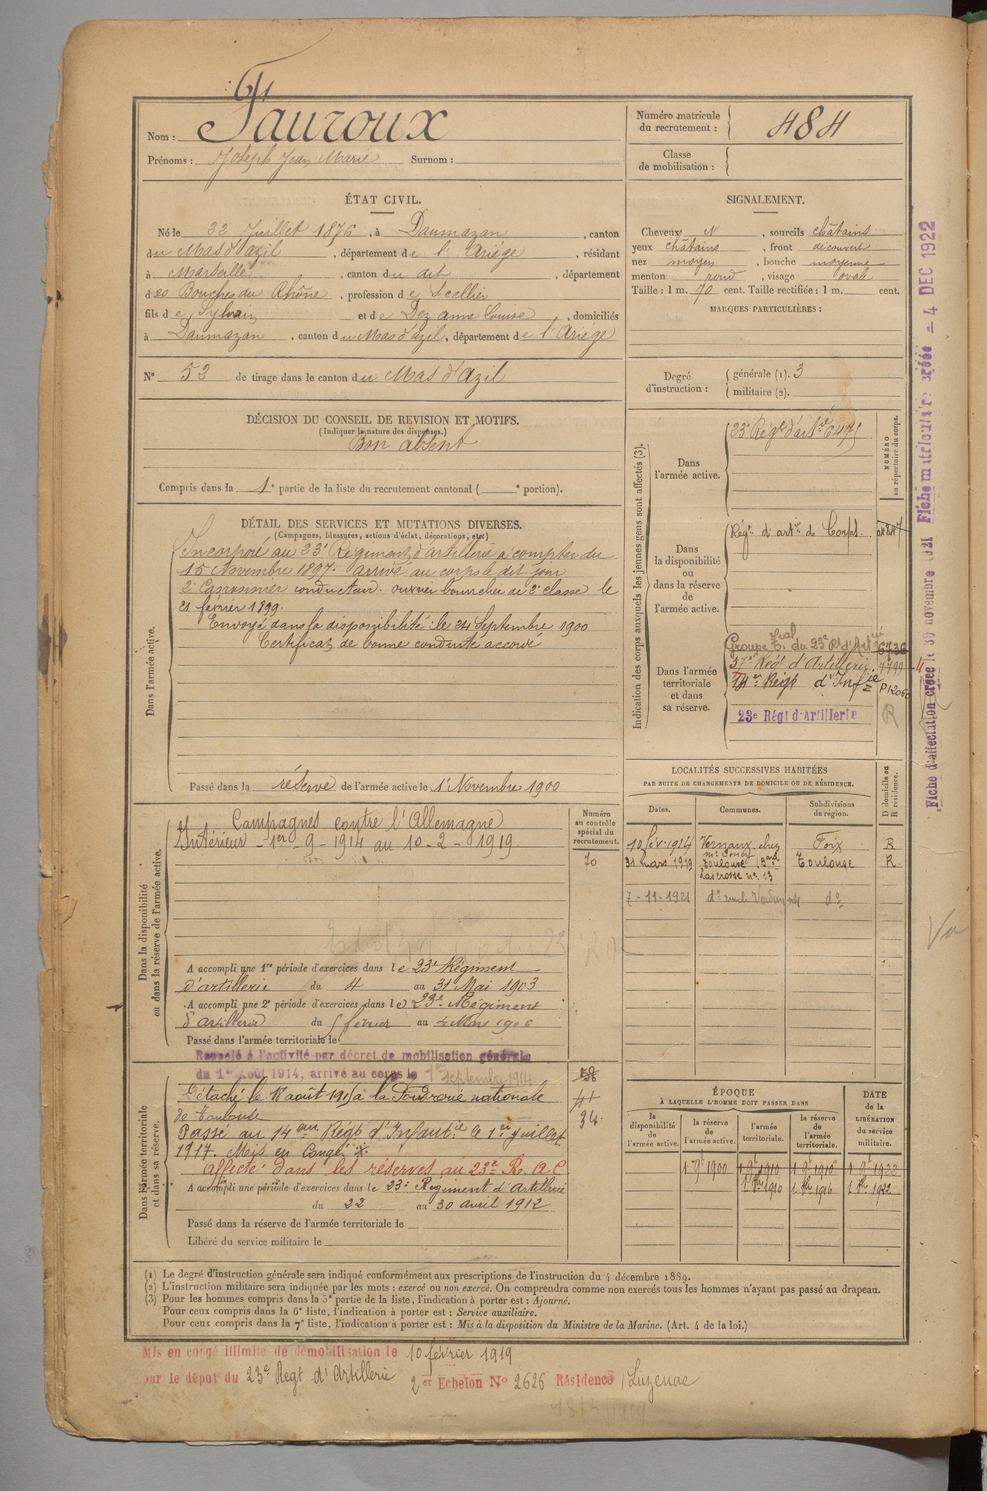 Nom : Fauroux
Prénoms : Joseph Jean Marie Surnom :
Numéro matricule du recrutement : 484
Classe de mobilisation :
ÉTAT CIVIL.
Né le 22 Juillet 1876, à Daumazan, canton
du Mas d'azil, département de l'Ariège, résidant
à Marseille, canton du dit, département
des Bouches du Rhône, profession de Sellier
fils de Sylvain et de Dez anne Louise, domiciliés
à Daumazan, canton du Mas d'azil, département de l'Ariège
N° 53 de tirage dans le canton du Mas d'Azil
SIGNALEMENT.
Cheveux N, sourcils châtains
yeux châtains, front découvert
nez moyen, bouche moyenne
menton rond, visage ovale
Taille : 1 m. 70 cent. Taille rectifiée : 1 m. cent.
MARQUES PARTICULIÈRES :
Degré d'instruction : générale (1). 3
militaire (2).
DÉCISION DU CONSEIL DE REVISION ET MOTIFS.
(Indiquer la nature des dispenses.)
Bon absent
Compris dans la 1e partie de la liste du recrutement cantonal ( e portion).
DÉTAIL DES SERVICES ET MUTATIONS DIVERSES.
(Campagnes, blessures, actions d'éclat, décorations, etc.)
Dans l'armée active.
Incorporé au 23e Régiment d'artillerie à compter du
15 Novembre 1897. arrivé au corps le dit jour
2e Canonnier conducteur. ouvrier bourrelier de 2e classe le
21 février 1899.
Envoyé dans la disponibilité le 24 Septembre 1900
Certificat de bonne conduite accordé
Passé dans la réserve de l'armée active le 1er Novembre 1900
Indication des corps auxquels les jeunes gens sont affectés (3).
NUMÉRO au répertoire du corps.
Dans l'armée active.
23e Régt d'artie
Dans la disponibilité ou dans la réserve de l'armée active.
Régt d'artie de Corps.
Dans l'armée territoriale et dans sa réserve.
Groupe Tial du 23e Rt d'Artie
37e Régt d'Artillerie
14e Régt d'Infie
23e Régt d'Artillerie
R
LOCALITÉS SUCCESSIVES HABITÉES
PAR SUITE DE CHANGEMENTS DE DOMICILE OU DE RÉSIDENCE.
Dates. Communes. Subdivisions de région. D domicile ou R résidence.
10 fév. 1914 Vernaux chez Foix R
31 mars 1919 Toulouse Toulouse R
Lascrosse no 13
7-11-1921 do do
Dans la disponibilité ou dans la réserve de l'armée active.
Numéro au contrôle spécial du recrutement.
Campagnes contre l'Allemagne
Intérieur - 1er - 9 - 1914 au 10 - 2 - 1919
A accompli une 1re période d'exercices dans le 23e Régiment
d'artillerie du 4 au 31 Mai 1903
A accompli une 2e période d'exercices dans le 23e Régiment
d'artillerie du 5 février au 4 Mars 1906
Passé dans l'armée territoriale le
Rappelé à l'activité par décret de mobilisation générale
du 1er Août 1914, arrivé au corps le 1er septembre 1914.
Dans l'armée territoriale et dans sa réserve.
Détaché le 11 août 1915 à la Poudrerie nationale
de Toulouse
Passé au 14eme Régt d'Infantie le 1er juillet
1917. Mis en Congé
Affecté dans les réserves au 23e R.A.C.
A accompli une période d'exercices dans le 23e Régiment d'Artillerie
du 22 au 30 avril 1912
Passé dans la réserve de l'armée territoriale le
Libéré du service militaire le
34
ÉPOQUE
À LAQUELLE L'HOMME DOIT PASSER DANS
la disponibilité de l'armée active. la réserve de l'armée active. l'armée territoriale. la réserve de l'armée territoriale. DATE de la LIBÉRATION du service militaire.
1 9bre 1900 1 9bre 1910 1 9bre 1916 1 9bre 1922
1 8bre 1910 1 8bre 1916 1 8bre 1922
(1) Le degré d'instruction générale sera indiqué conformément aux prescriptions de l'instruction du 4 décembre 1889.
(2) L'instruction militaire sera indiquée par les mots : exercé ou non exercé. On comprendra comme non exercés tous les hommes n'ayant pas passé au drapeau.
(3) Pour les hommes compris dans la 5e partie de la liste, l'indication à porter est : Ajourné.
Pour ceux compris dans la 6e liste, l'indication à porter est : Service auxiliaire.
Pour ceux compris dans la 7e liste, l'indication à porter est : Mis à la disposition du Ministre de la Marine. (Art. 4 de la loi.)
Mis en congé illimité de démobilisation le 10 février 1919
par le dépôt du 23e Regt d'Artillerie 2er Echelon No 2626 Résidence Luzenac
Fiche d'affectation créée le 30 novembre 1921 Fiche matriculaire créée - 4 DEC 1922